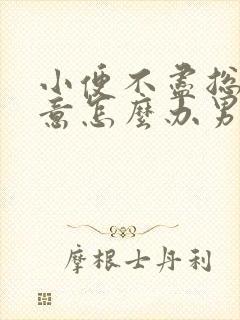 小便不尽总
意怎麼办男
摩根士丹利